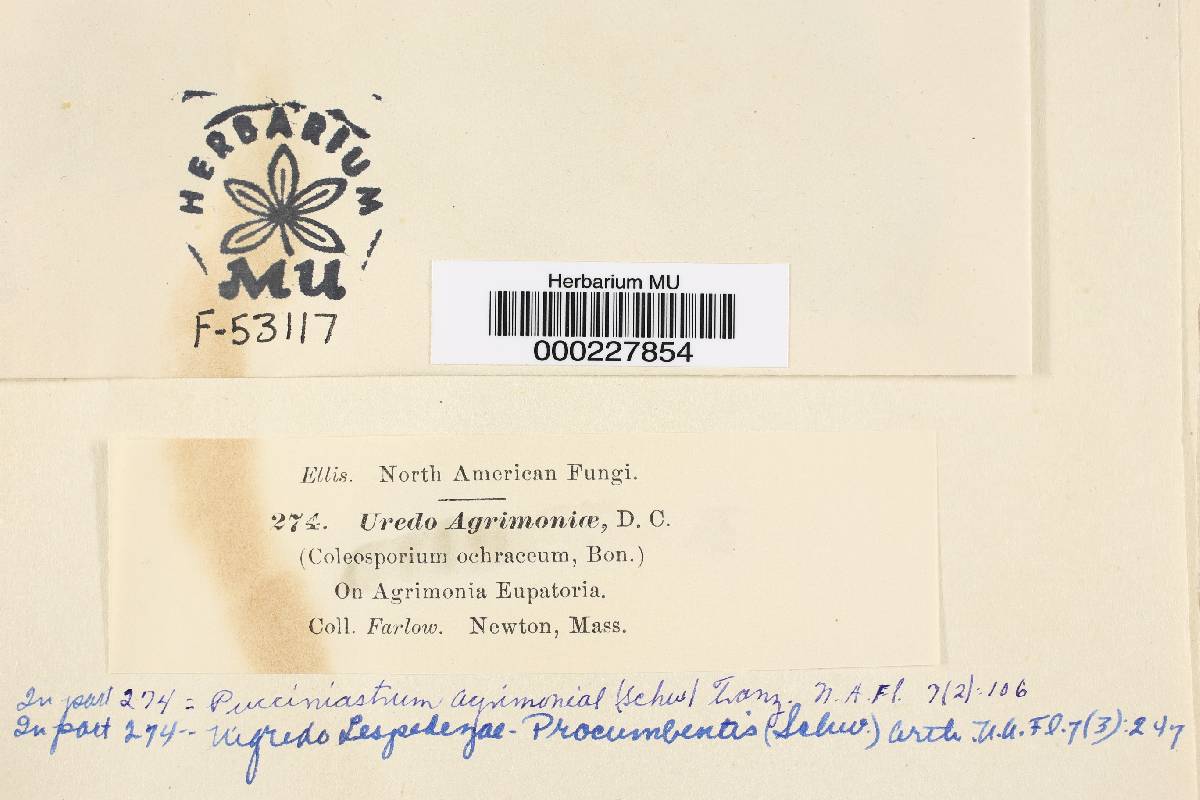 HERBARIUM
MU
F-53117
Herbarium MU
000227854
Ellis. North American Fungi.
274. Uredo Agrimoniæ, D. C.
(Coleosporium ochraceum, Bon.)
On Agrimonia Eupatoria.
Coll. Farlow. Newton, Mass.
In part 274 = Pucciniastrum agrimoniae (Schw) Tranz. N. A. Fl. 7(2):106
In part 274-- Nigredo Lespedezae-Procumbentis (Schw.) Arth. N.A.Fl.7(3):247